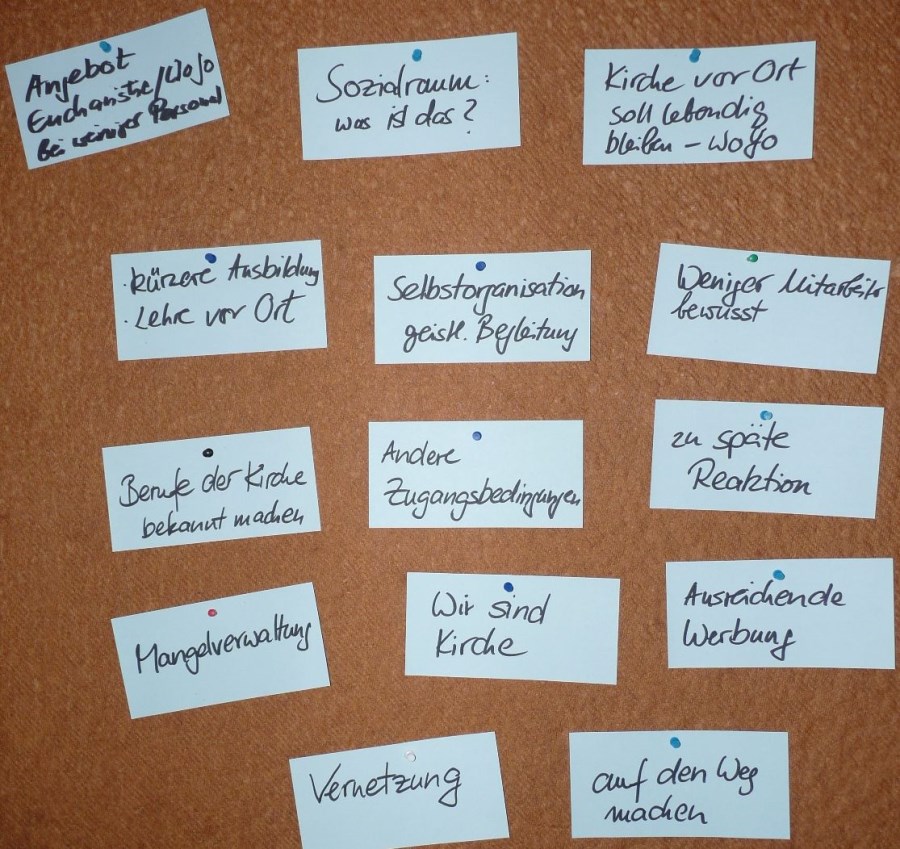 Angebot
Eucharistie/WoJo
bei weniger Personal
Sozialraum:
was ist das?
Kirche vor Ort
soll lebendig
bleiben – WoGo
· kürzere Ausbildung
· Lehre vor Ort
Selbstorganisation
geistl. Begleitung
Weniger Mitarbeiter
bewusst
Berufe der Kirche
bekannt machen
Andere
Zugangsbedingungen
zu späte
Reaktion
Mangelverwaltung
Wir sind
Kirche
Ausreichende
Werbung
Vernetzung
auf den Weg
machen